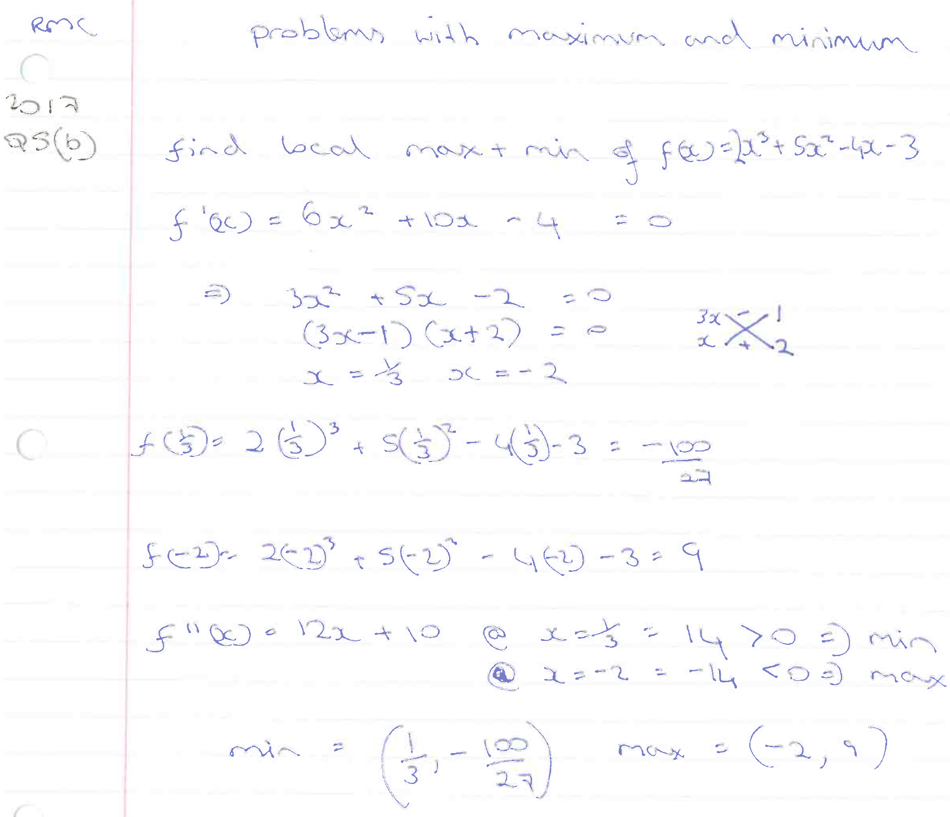 RMC
problems with maximum and minimum
2017
Q5(b)
find local max + min of f(x)=2x³+5x²-4x-3
f'(x) = 6x² +10x - 4 = 0
⇒ 3x² + 5x - 2 = 0
(3x-1)(x+2) = 0
3x - 1
x + 2
x = 1/3 x = -2
f(1/3) = 2(1/3)³ + 5(1/3)² - 4(1/3) - 3 = -100/27
f(-2) = 2(-2)³ + 5(-2)² - 4(-2) - 3 = 9
f''(x) = 12x + 10 @ x=1/3 = 14 >0 ⇒ min
@ x=-2 = -14 <0 ⇒ max
min = (1/3, -100/27) max = (-2, 9)